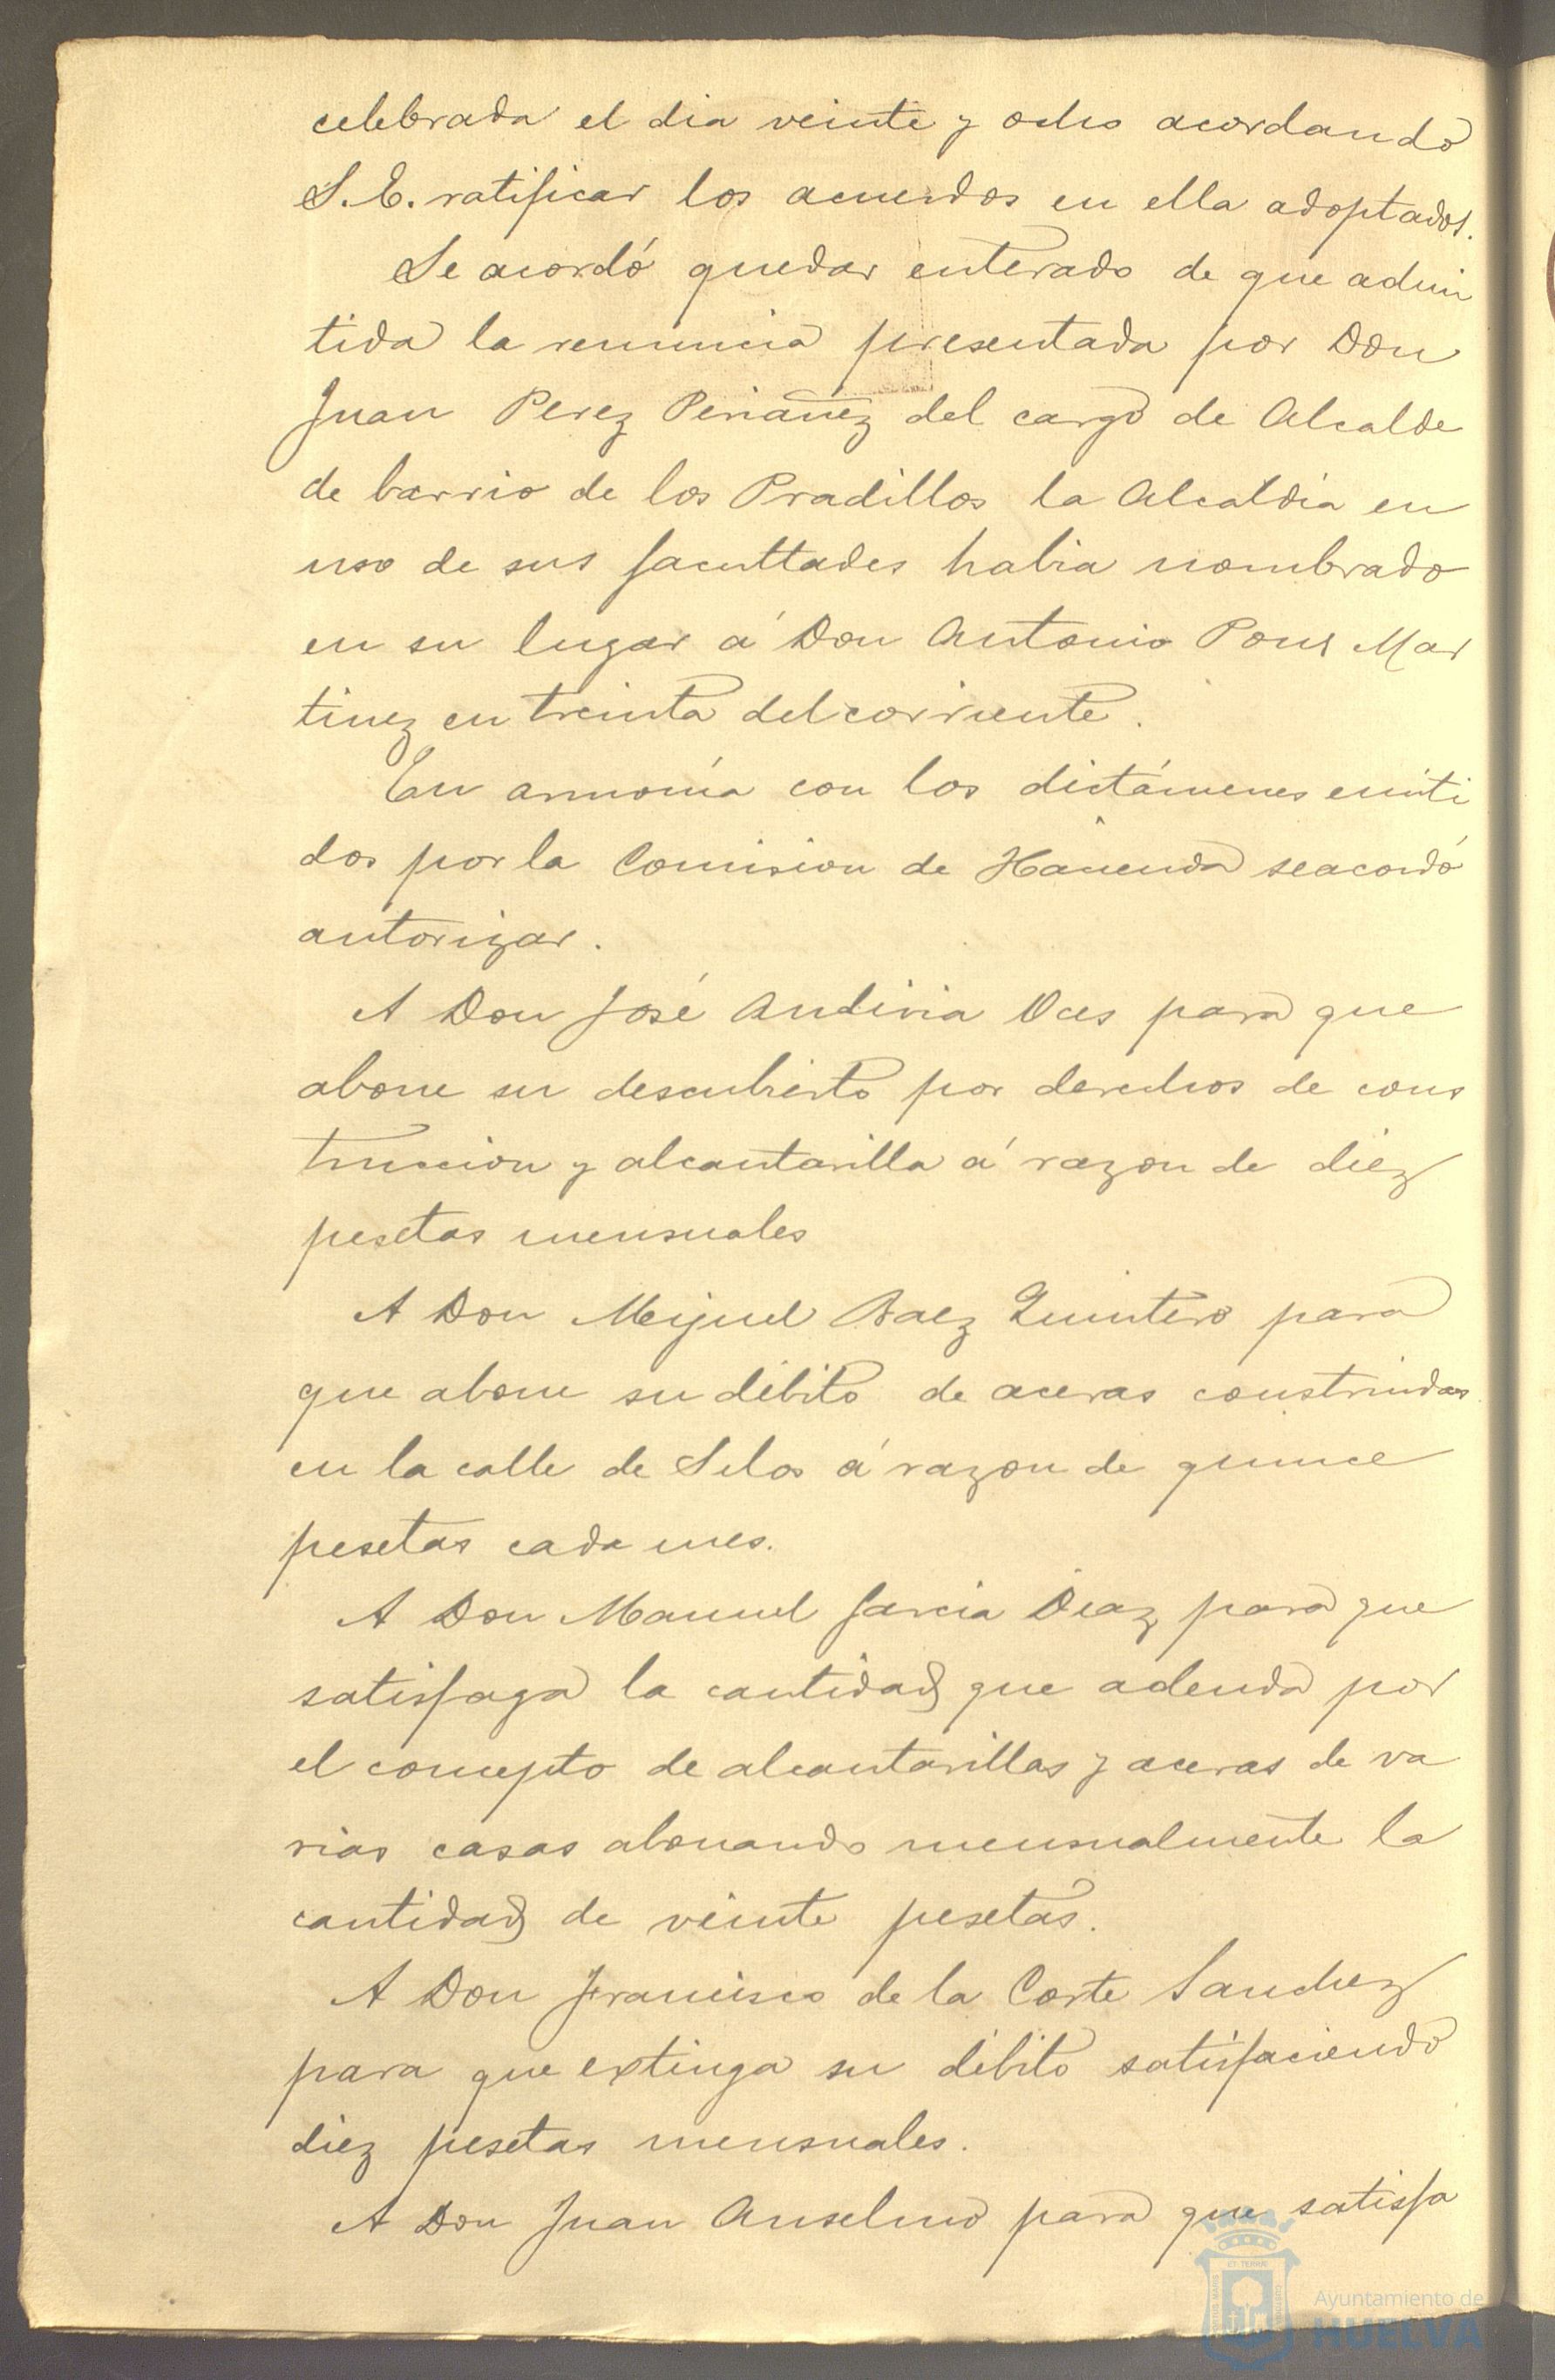 celebrada el dia veinte y ocho acordando
S. E. ratificar los acuerdos en ella adoptados.
Se acordó quedar enterado de que admi
tida la renuncia presentada por Don
Juan Perez Periañez del cargo de Alcalde
de barrio de los Pradillos la Alcaldia en
uso de sus facultades habia nombrado
en su lugar á Don Antonio Pons Mar
tinez en treinta del corriente.
En armonía con los dictámenes emiti
dos por la Comision de Hacienda se acordó
autorizar.
A Don José Andivia Oces para que
abone su descubierto por derechos de cons
truccion y alcantarilla á razon de diez
pesetas mensuales
A Don Miguel Baez Quintero para
que abone su débito de aceras construidas
en la calle de Silos á razon de quince
pesetas cada mes.
A Don Manuel Garcia Diaz para que
satisfaga la cantidad que adeuda por
el concepto de alcantarillas y aceras de va
rias casas abonando mensualmente la
cantidad de veinte pesetas.
A Don Francisco de la Corte Sanchez
para que extinga su débito satisfaciendo
diez pesetas mensuales.
A Don Juan Anselmo para que satisfa
Ayuntamiento de
HUELVA